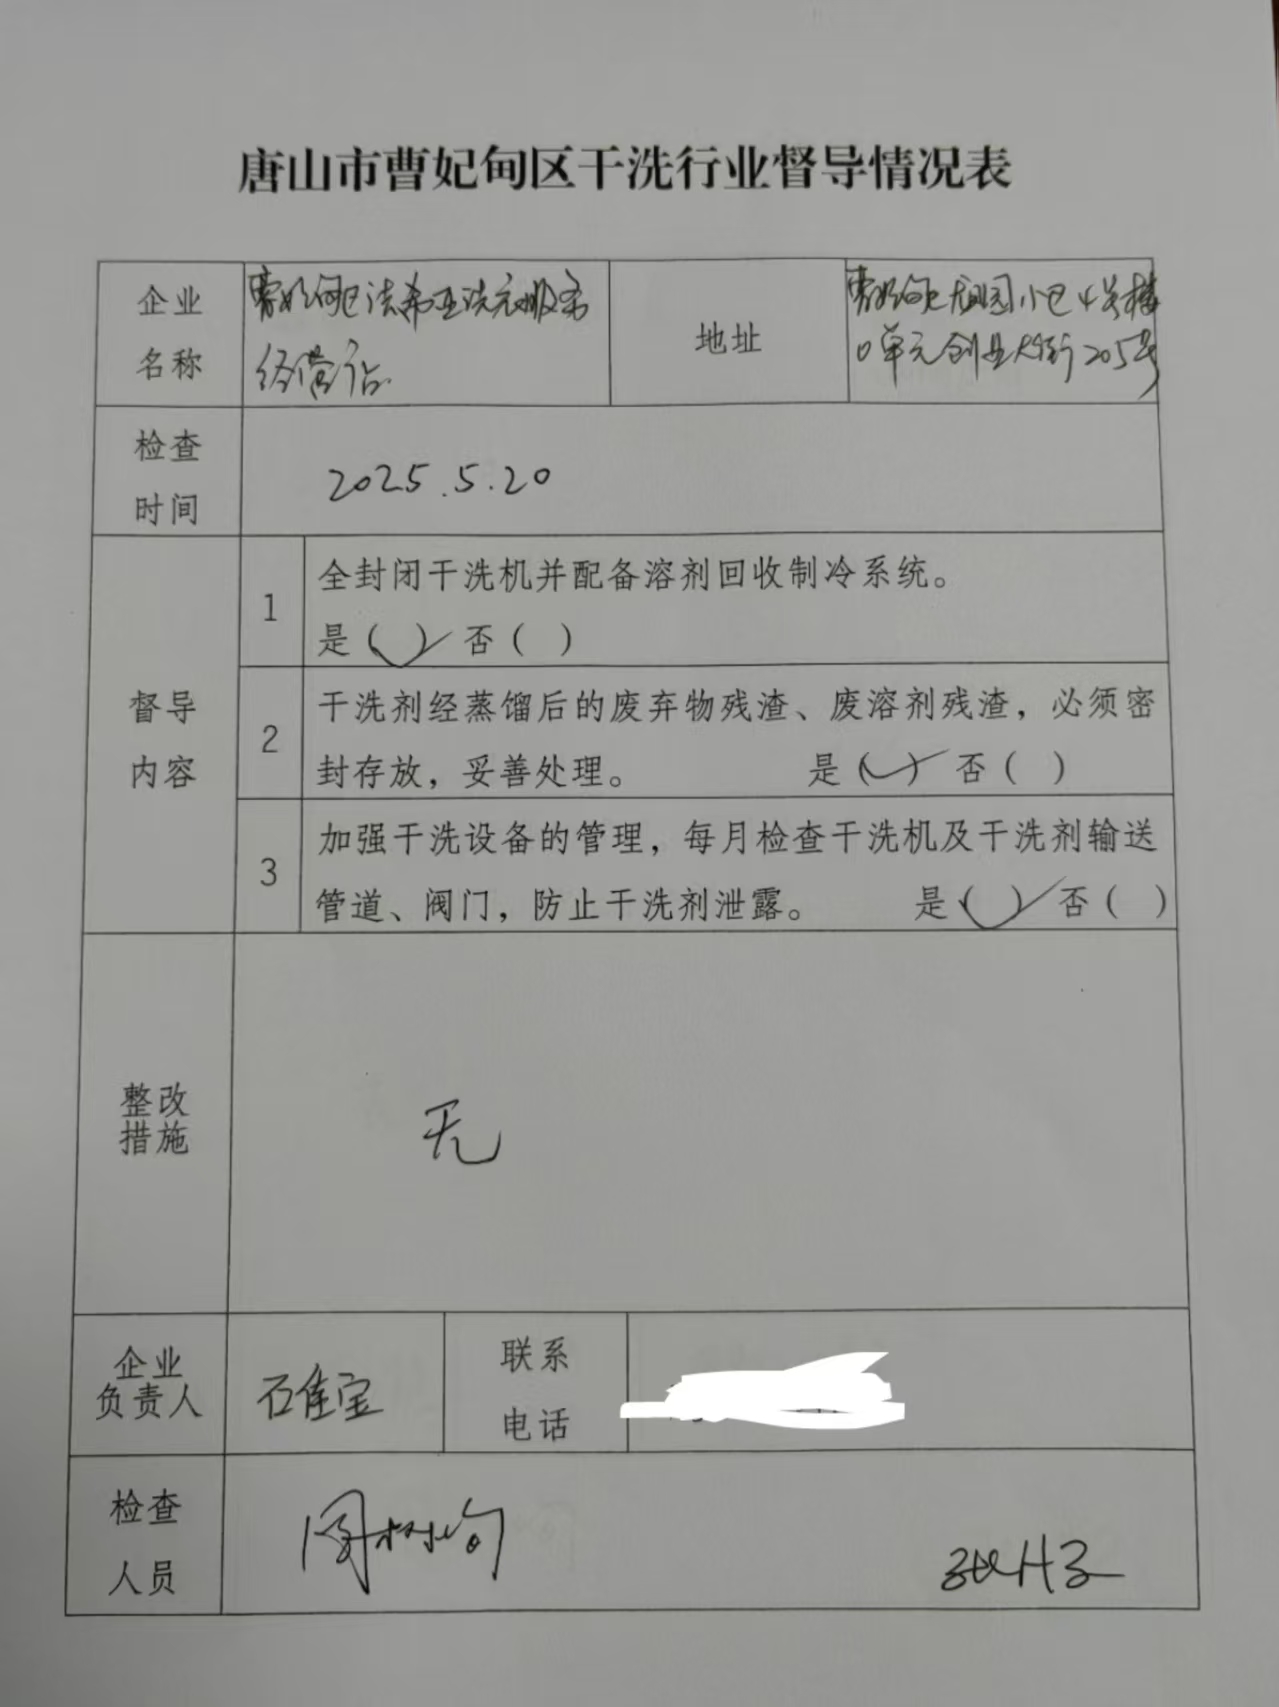 唐山市曹妃甸区干洗行业督导情况表
企业
名称
曹妃甸区法希亚洗衣服务
经营店
地址
曹妃甸区龙园小区4号楼
0单元创业大街205号
检查
时间
2025.5.20
督导
内容
1
全封闭干洗机并配备溶剂回收制冷系统。
是(✓) 否( )
2
干洗剂经蒸馏后的废弃物残渣、废溶剂残渣，必须密
封存放，妥善处理。 是(✓) 否( )
3
加强干洗设备的管理，每月检查干洗机及干洗剂输送
管道、阀门，防止干洗剂泄露。 是(✓) 否( )
整改
措施
无
企业
负责人
石佳宝
联系
电话
检查
人员